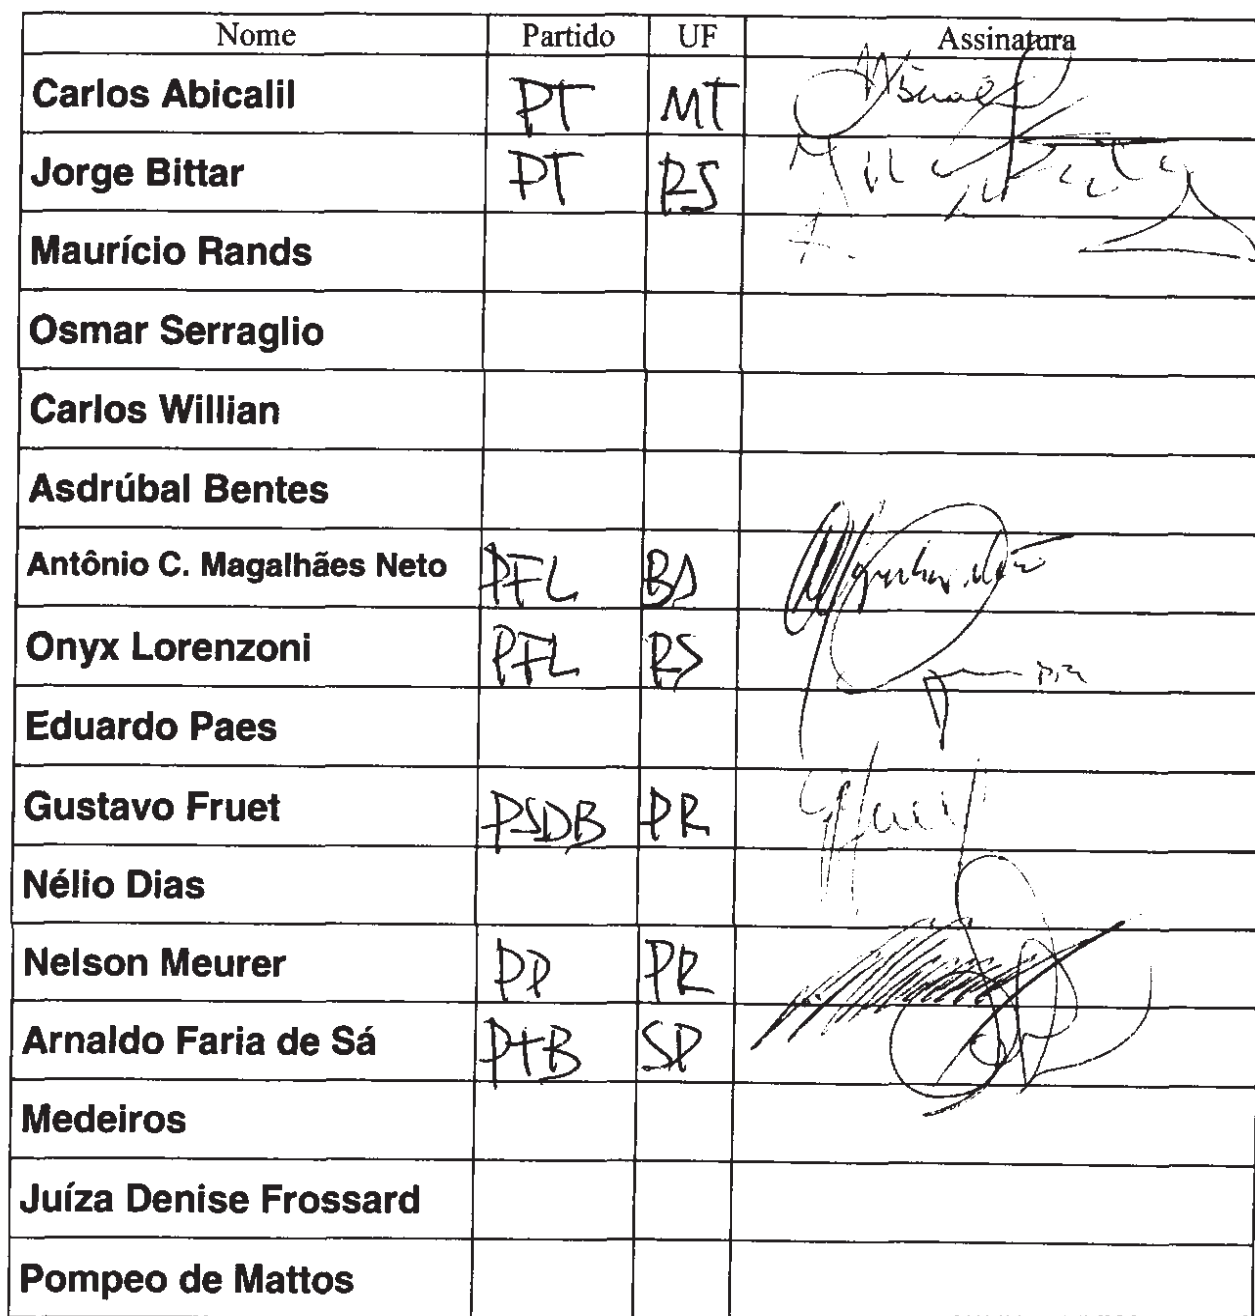 Nome Partido UF Assinatura
Carlos Abicalil PT MT
Jorge Bittar PT RS
Maurício Rands
Osmar Serraglio
Carlos Willian
Asdrúbal Bentes
Antônio C. Magalhães Neto PFL BA
Onyx Lorenzoni PFL RS
Eduardo Paes
Gustavo Fruet PSDB PR
Nélio Dias
Nelson Meurer PP PR
Arnaldo Faria de Sá PTB SP
Medeiros
Juíza Denise Frossard
Pompeo de Mattos